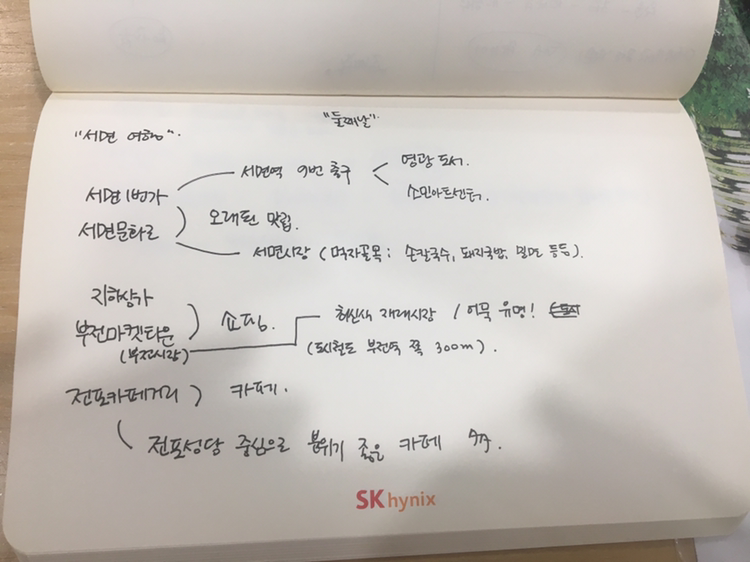 "둘째날"
"서면 여행"
서면역 9번 출구 < 영광도서.
소민아트센터.
서면1번가
서면문화로
) 오래된 맛집.
서면시장 (먹자골목: 손칼국수, 돼지국밥, 밀면 등등).
지하상가
부전마켓타운
(부전시장)
) 쇼핑.
최신식 재래시장 / 어묵 유명!
(도시철도 부전역 쪽 300m).
전포카페거리 ) 카페.
전포성당 중심으로 분위기 좋은 카페 多.
SK hynix